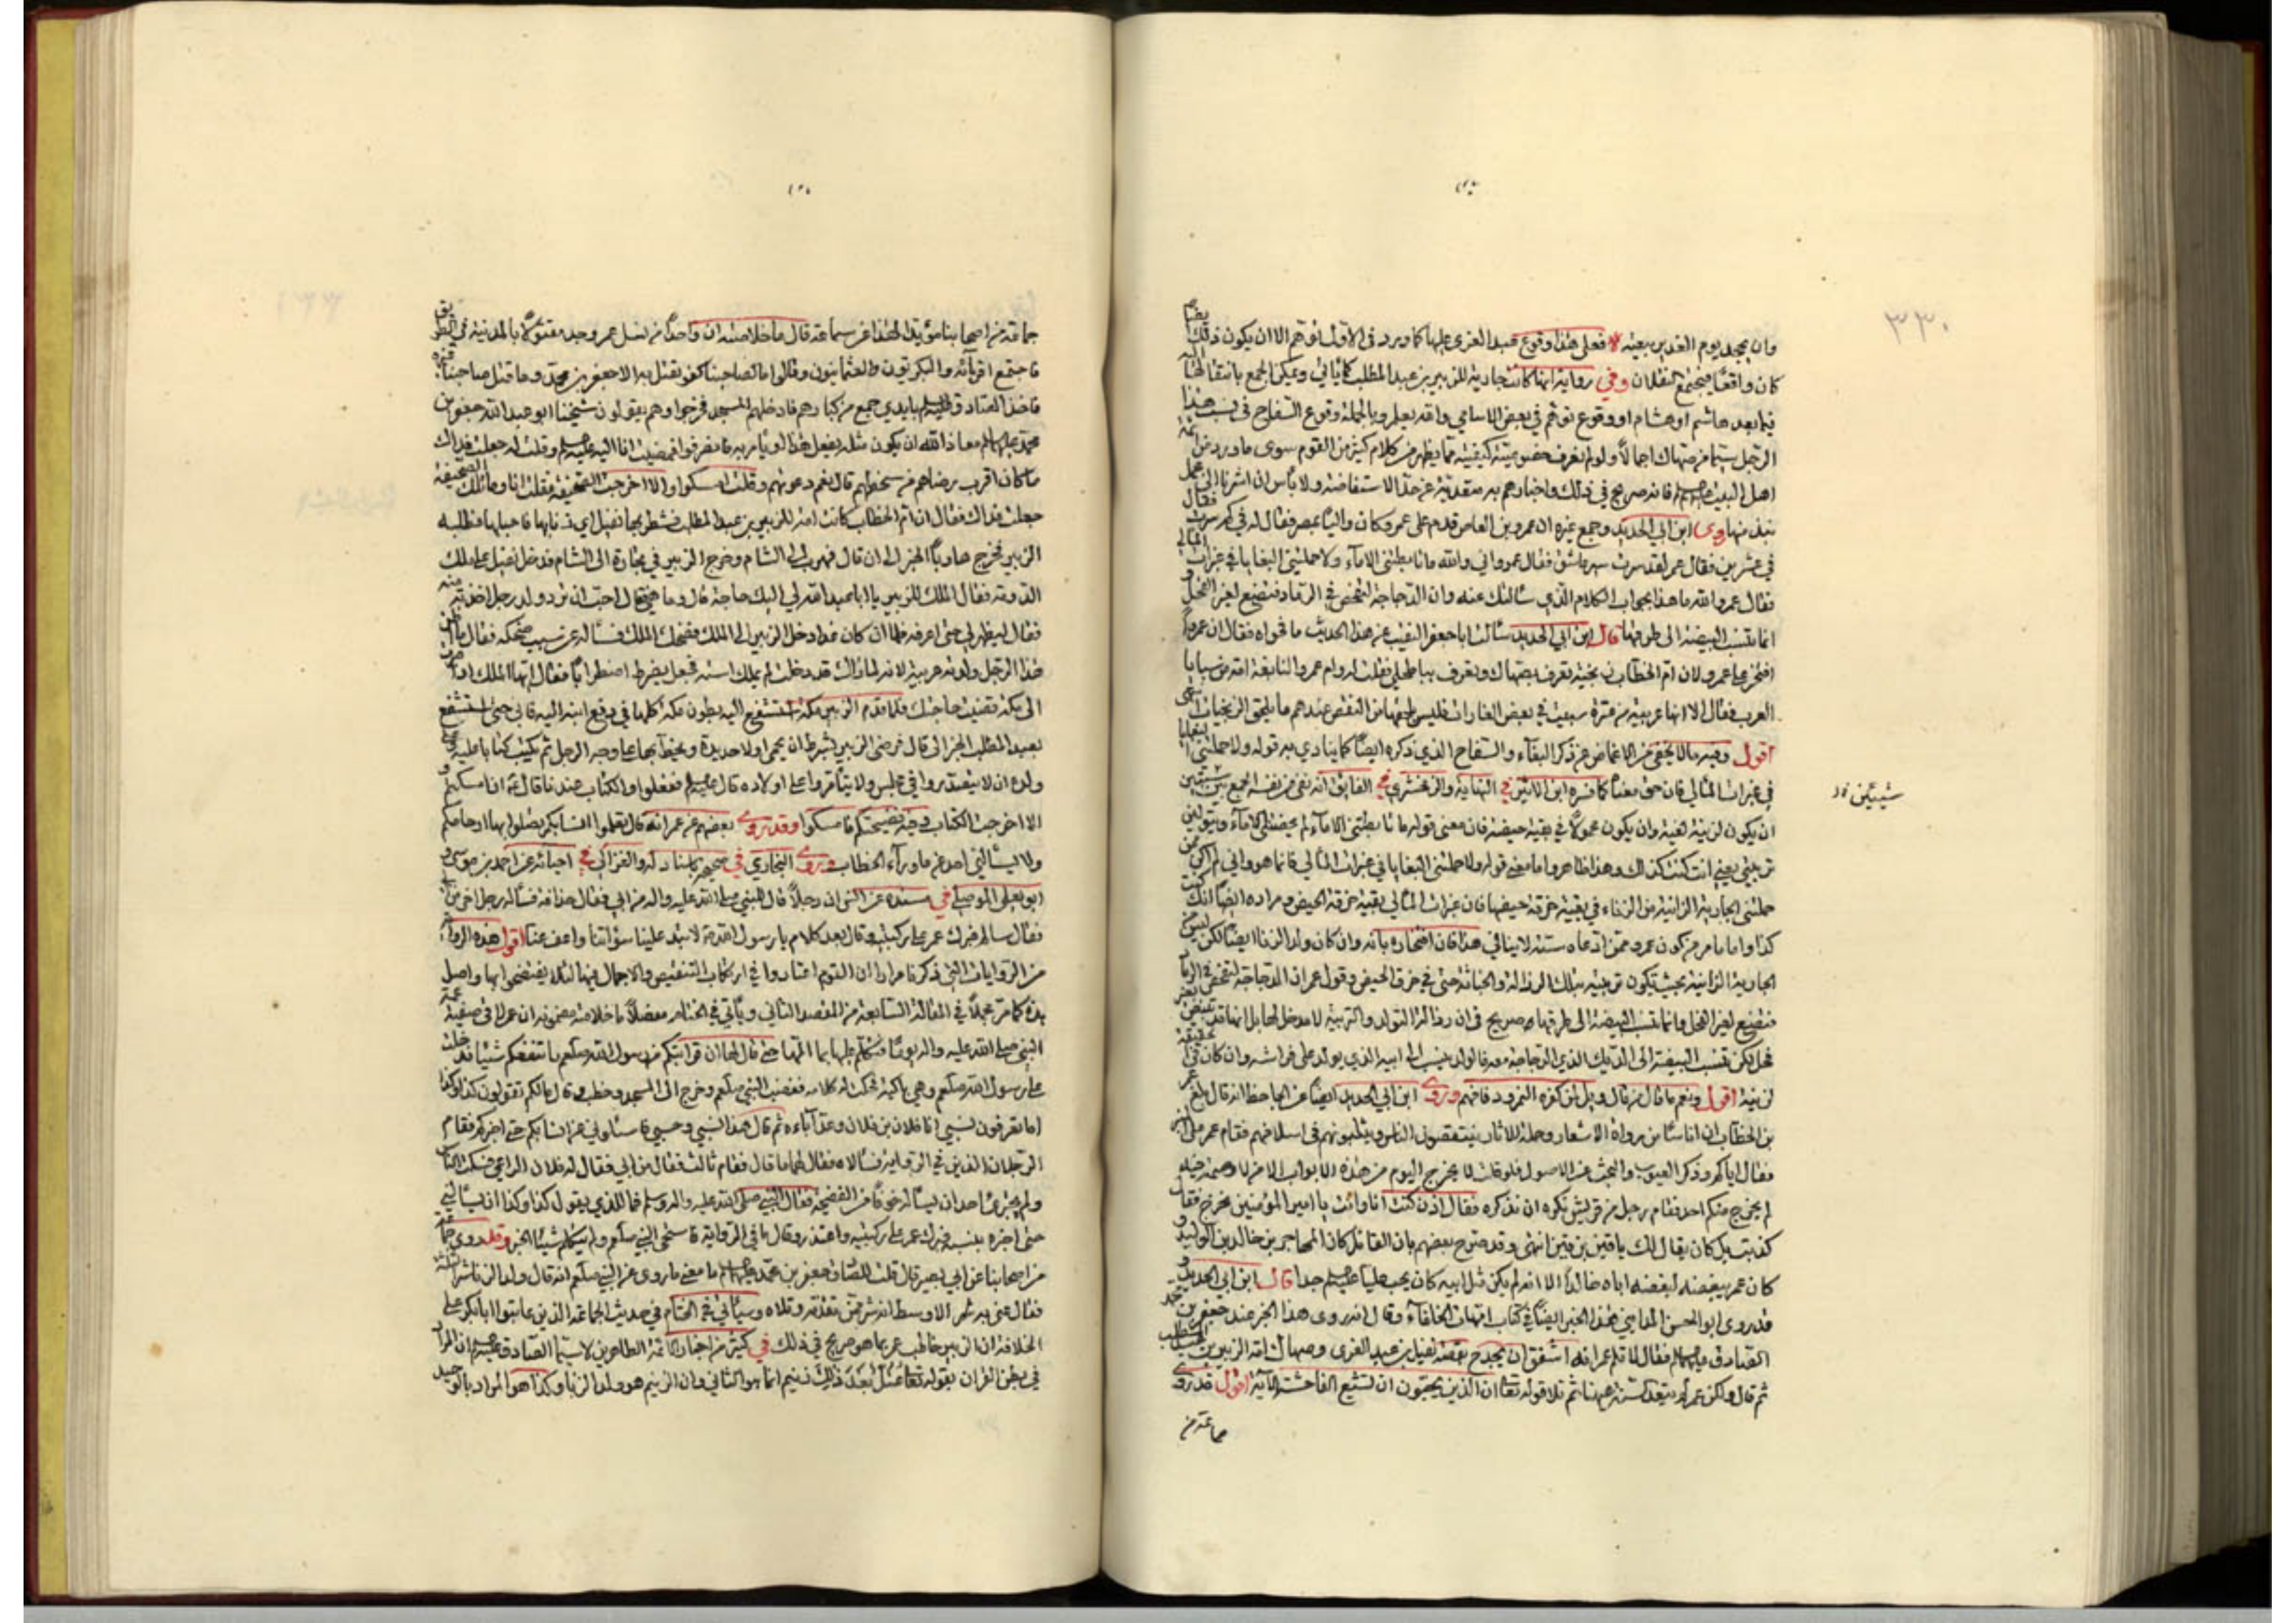 ٣٣٠
وان يجحد يوم الغدير بعينه فعلى هذا وقوع عبد العزى عليها كما ورد في الاول توهم الا ان يكون ذلك ايضا
كان واقعا فيجتمع النقلان وفي رواية انها كانت جارية للزبير بن عبد المطلب كما يأتي ويمكن الجمع بانتقالها اليه
فيما بعد هاشم او هشام او وقوع توهم في بعض الاسامي والله يعلم وبالجملة وقوع السفاح في نسب هذا
الرجل سيما من صهاك اجمالا ولو لم نعرف خصوصيته كيفيته مما يظهر من كلام كثير من القوم سوى ما ورد من
اهل البيت فانه صريح في ذلك واخبارهم به متعدية عن حد الاستفاضة ولا بأس ان اشرنا الى
نبذ منها روى ابن ابي الحديد وجمع غيره ان عمرو بن العاص قدم على عمر وكان واليا بمصر فقال له في كم سرت فقال
في عشرين فقال عمر لقد سرت سير عاشق فقال عمرو اني والله ما تأبطتني الاماء ولا حملتني البغايا في غبرات المآلي
فقال عمر والله ما هذا بجواب الكلام الذي سألتك عنه وان الدجاجة لتفحص في الرماد فتضع لغير الفحل
انما تنسب البيضة الى طرقها قال ابن ابي الحديد سألت ابا جعفر النقيب عن هذا الحديث ما فحواه فقال ان عمروا
افتخر على عمر ولان ام الخطاب زنجية تعرف بصهاك وتعرف بباطحلي فقلت له وام عمرو النابغة امة من سبايا
العرب فقال الا انها عربية من عنزة سبيت في بعض الغارات فليس يلحقها من النقص عندهم ما يلحق الزنجيات
اقول وفيه ما لا يخفى من الاغماض عن ذكر البغاء والسفاح الذي ذكره ايضا كما ينادي به قوله ولا حملتني البغايا
في غبرات المآلي فان حق معناه كما فسره ابن الاثير في النهاية والزمخشري في الفايق انه نفى عن نفسه الجمع بين شيئين
شيئين
ان يكون لزنية لغية وان يكون محمولا في بقية حيضة فان معنى قوله ما تأبطتني الاماء لم يحضنني الاماء ويتولين
تربيتي يعني انت كنت كذلك وهذا ظاهر واما معنى قوله ولا حملتني البغايا في غبرات المآلي فانما هو واني لم اكن ممن
حملتني الجارية الزانية من الزناء في بقية خرقة حيضها فان غبرات المآلي بقية خرقة الحيض ومراده ايضا انك كنت
الجارية الزانية بحيث يكون تربيته بتلك الرذالة والخباثة حتى في خرق الحيض وقول عمر ان الدجاجة لتفحص في الرماد
فتضع لغير الفحل وانما تنسب البيضة الى طرقها صريح في ان رذالة التولد والتربية لا مدخل لها
لزنية اقول ونعم ما قال من قال ويل لمن كفره النمرود فافهم وروى ابن ابي الحديد ايضا عن الجاحظ انه قال بلغ عمر
بن الخطاب ان اناسا من رواة الاشعار وحملة الاثار ينتقصون الناس ويثلبونهم في اسلافهم فقام عمر على المنبر
فقال اياكم وذكر العيوب والبحث عن الاصول فلو قلت لا يخرج اليوم من هذه الابواب الا من لا وصمة فيه
لم يخرج منكم احد فقام رجل من قريش نكره ان نذكره فقال اذن كنت انا وانت يا امير المؤمنين نخرج فقال
كذبت بل كان يقال لك يا قين بن قين انتهى وقد صرح بعضهم بان القائل كان المهاجر بن خالد بن الوليد و
كان عمر يبغضه لبغضه اباه خالدا الا انه لم يكن مثل ابيه كان يحب عليا جدا قال ابن ابي الحديد و
قد روى ابو الحسن المدايني هذا الخبر ايضا في كتاب امهات الخلفاء وقال انه روى هذا الخبر عند جعفر بن محمد
الصادق فقال لا تلم عمر انه اشفق ان يحدج بقصة نفيل بن عبد العزى وصهاك امة الزبير بن عبد المطلب
ثم قال ولكن عمر ثم تلا قوله تعالى ان الذين يحبون ان تشيع الفاحشة الآية اقول قد روى
جماعة من
جماعة من اصحابنا مؤيدا لهذا عن سماعة قال ما خلاصته ان واحدا من نسل عمر وجد مقتولا بالمدينة في الطريق
فاجتمع اقربائه والبكريون والعثمانيون وقالوا ما لصاحبنا كفو نقتل به الا جعفر بن محمد وما قتل صاحبنا غيره
فاخذ الصادق بايدي جمع من كبارهم فادخلهم المسجد فخرجوا وهم يقولون شيخنا ابو عبد الله جعفر بن
محمد معاذ الله ان يكون مثله يفعل هذا او يأمر به فانصرفوا فمضيت انا اليه وقلت له جعلت فداك
ما كان اقرب رضاهم من سخطهم قال نعم دعوتهم وقلت امسكوا والا اخرجت الصحيفة فقلت انا وما تلك الصحيفة
جعلت فداك فقال ان ام الخطاب كانت امة للزبير بن عبد المطلب فشطر بها نفيل اي زنى بها فاحبلها فطلبه
الزبير فخرج هاربا الخبر الى ان قال فهرب الى الشام وخرج الزبير في تجارة الى الشام فدخل نفيل على ملك
الدومة فقال الملك للزبير يا ابا عبد الله لي اليك حاجة قال وما هي قال احب ان ترد ولد رجل اخذته منه
فقال ليظهر لي حتى اعرفه فلما ان كان غدا دخل الزبير الى الملك فضحك الملك فسأله عن سبب ضحكه فقال ما اظن
هذا الرجل ولدته عربية لانه لما رآك قد دخلت لم يملك استه فجعل يضرط اضطرابا فقال ايها الملك اذا صرت
الى مكة قضيت حاجتك فلما قدم الزبير مكة استشفع اليه ببطون مكة كلها في دفع ابنه اليه فأبى حتى استشفع
بعبد المطلب الخبر الى قال فرضى الزبير بشرط ان يحمي اولا حديدة ويخط بها على وجه الرجل ثم يكتب كتابا عليه وعلى
ولده ان لا يتصدروا في مجلس ولا يتأمروا على اولاده قال ففعلوا والكتاب عندنا قائمة ان امسكتم و
الا اخرجت الكتاب وفيه فضيحتكم فامسكوا وقد روى بعضهم عن عمر انه قال تعلموا انسابكم تصلوا بها ارحامكم
ولا يسألني احد عم ما وراء الخطاب وروى البخاري في صحيحه باسناده والغزالي في احيائه عن احمد بن موسى و
ابو يعلى الموصلي في مسنده عن انس ان رجلا قال للنبي صلى الله عليه واله من ابي فقال حذافة فسأله رجل اخر من ابي
فقال سالم فبرك عمر على ركبتيه وقال بعد كلام يا رسول الله لا تبد علينا سوآتنا واعف عنا اقول هذه الرواية
من الروايات التي ذكرنا مرارا ان القوم اعتادوا في ارتكاب التنقيص والاجمال فيها لئلا يفتضحوا بها واصل
هذه كما مر مجملا في المقالة السابعة من المقصد الثاني ويأتي في الختام مفصلا ما خلاصة مضمونه ان عمر لاقى صفية عمة
النبي صلى الله عليه واله يوما فتكلم عليها بما آلمها حتى قال لها ان قرابتكم من رسول الله صلعم ما تنفعكم شيئا فدخلت
على رسول الله صلعم وهي باكية فحكت له كلامه فغضب النبي صلعم وخرج الى المسجد وخطب وقال مالكم تقولون كذا وكذا
اما تعرفون نسبي انا فلان بن فلان وعد آباءه ثم قال هذا نسبي وحسبي فاسئلوني عن انسابكم حتى اخبركم فقام
الرجلان اللذين في الرواية فسألاه فقال لهما ما قال فقام ثالث فقال من ابي فقال له فلان الراعي فسكت الناس
ولم يجترئ احد ان يسأله خوفا من الفضيحة فقال النبي صلى الله عليه واله وسلم فما للذي يقول كذا وكذا ان يسألني
حتى اخبره بنسبه فبرك عمر على ركبتيه واعتذر وقال ما في الرواية فاستحى النبي صلعم ولم يتكلم شيئا الخبر وقد روى جماعة
من اصحابنا عن ابي بصير قال قلت للصادق جعفر بن محمد ما معنى ما روى عن النبي صلعم انه قال ولد الزنا شر الثلثة
فقال عنى به شر الاوسط انه شر ممن تقدمه وتلاه وسيأتي في الختام في حديث الجماعة الذين عاتبوا ابا بكر على
الخلافة ان الزبير خاطب عمر بما هو صريح في ذلك في كثير من اخبار الائمة الطاهرين لا سيما الصادق ان المراد
في بطن القرآن بقوله تعالى عتل بعد ذلك زنيم انما هو الثاني وان الزنيم هو ولد الزنا وكذا هو المراد بالوحيد